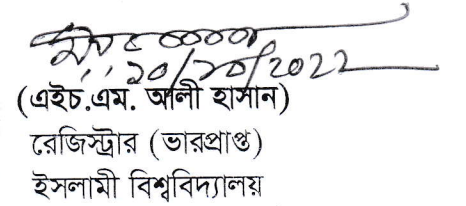 20/10/2022
(এইচ.এম. আলী হাসান)
রেজিস্ট্রার (ভারপ্রাপ্ত)
ইসলামী বিশ্ববিদ্যালয়